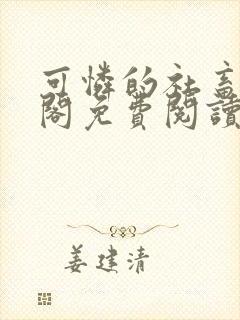 可憐的社畜
閣免費閱讀
姜建清